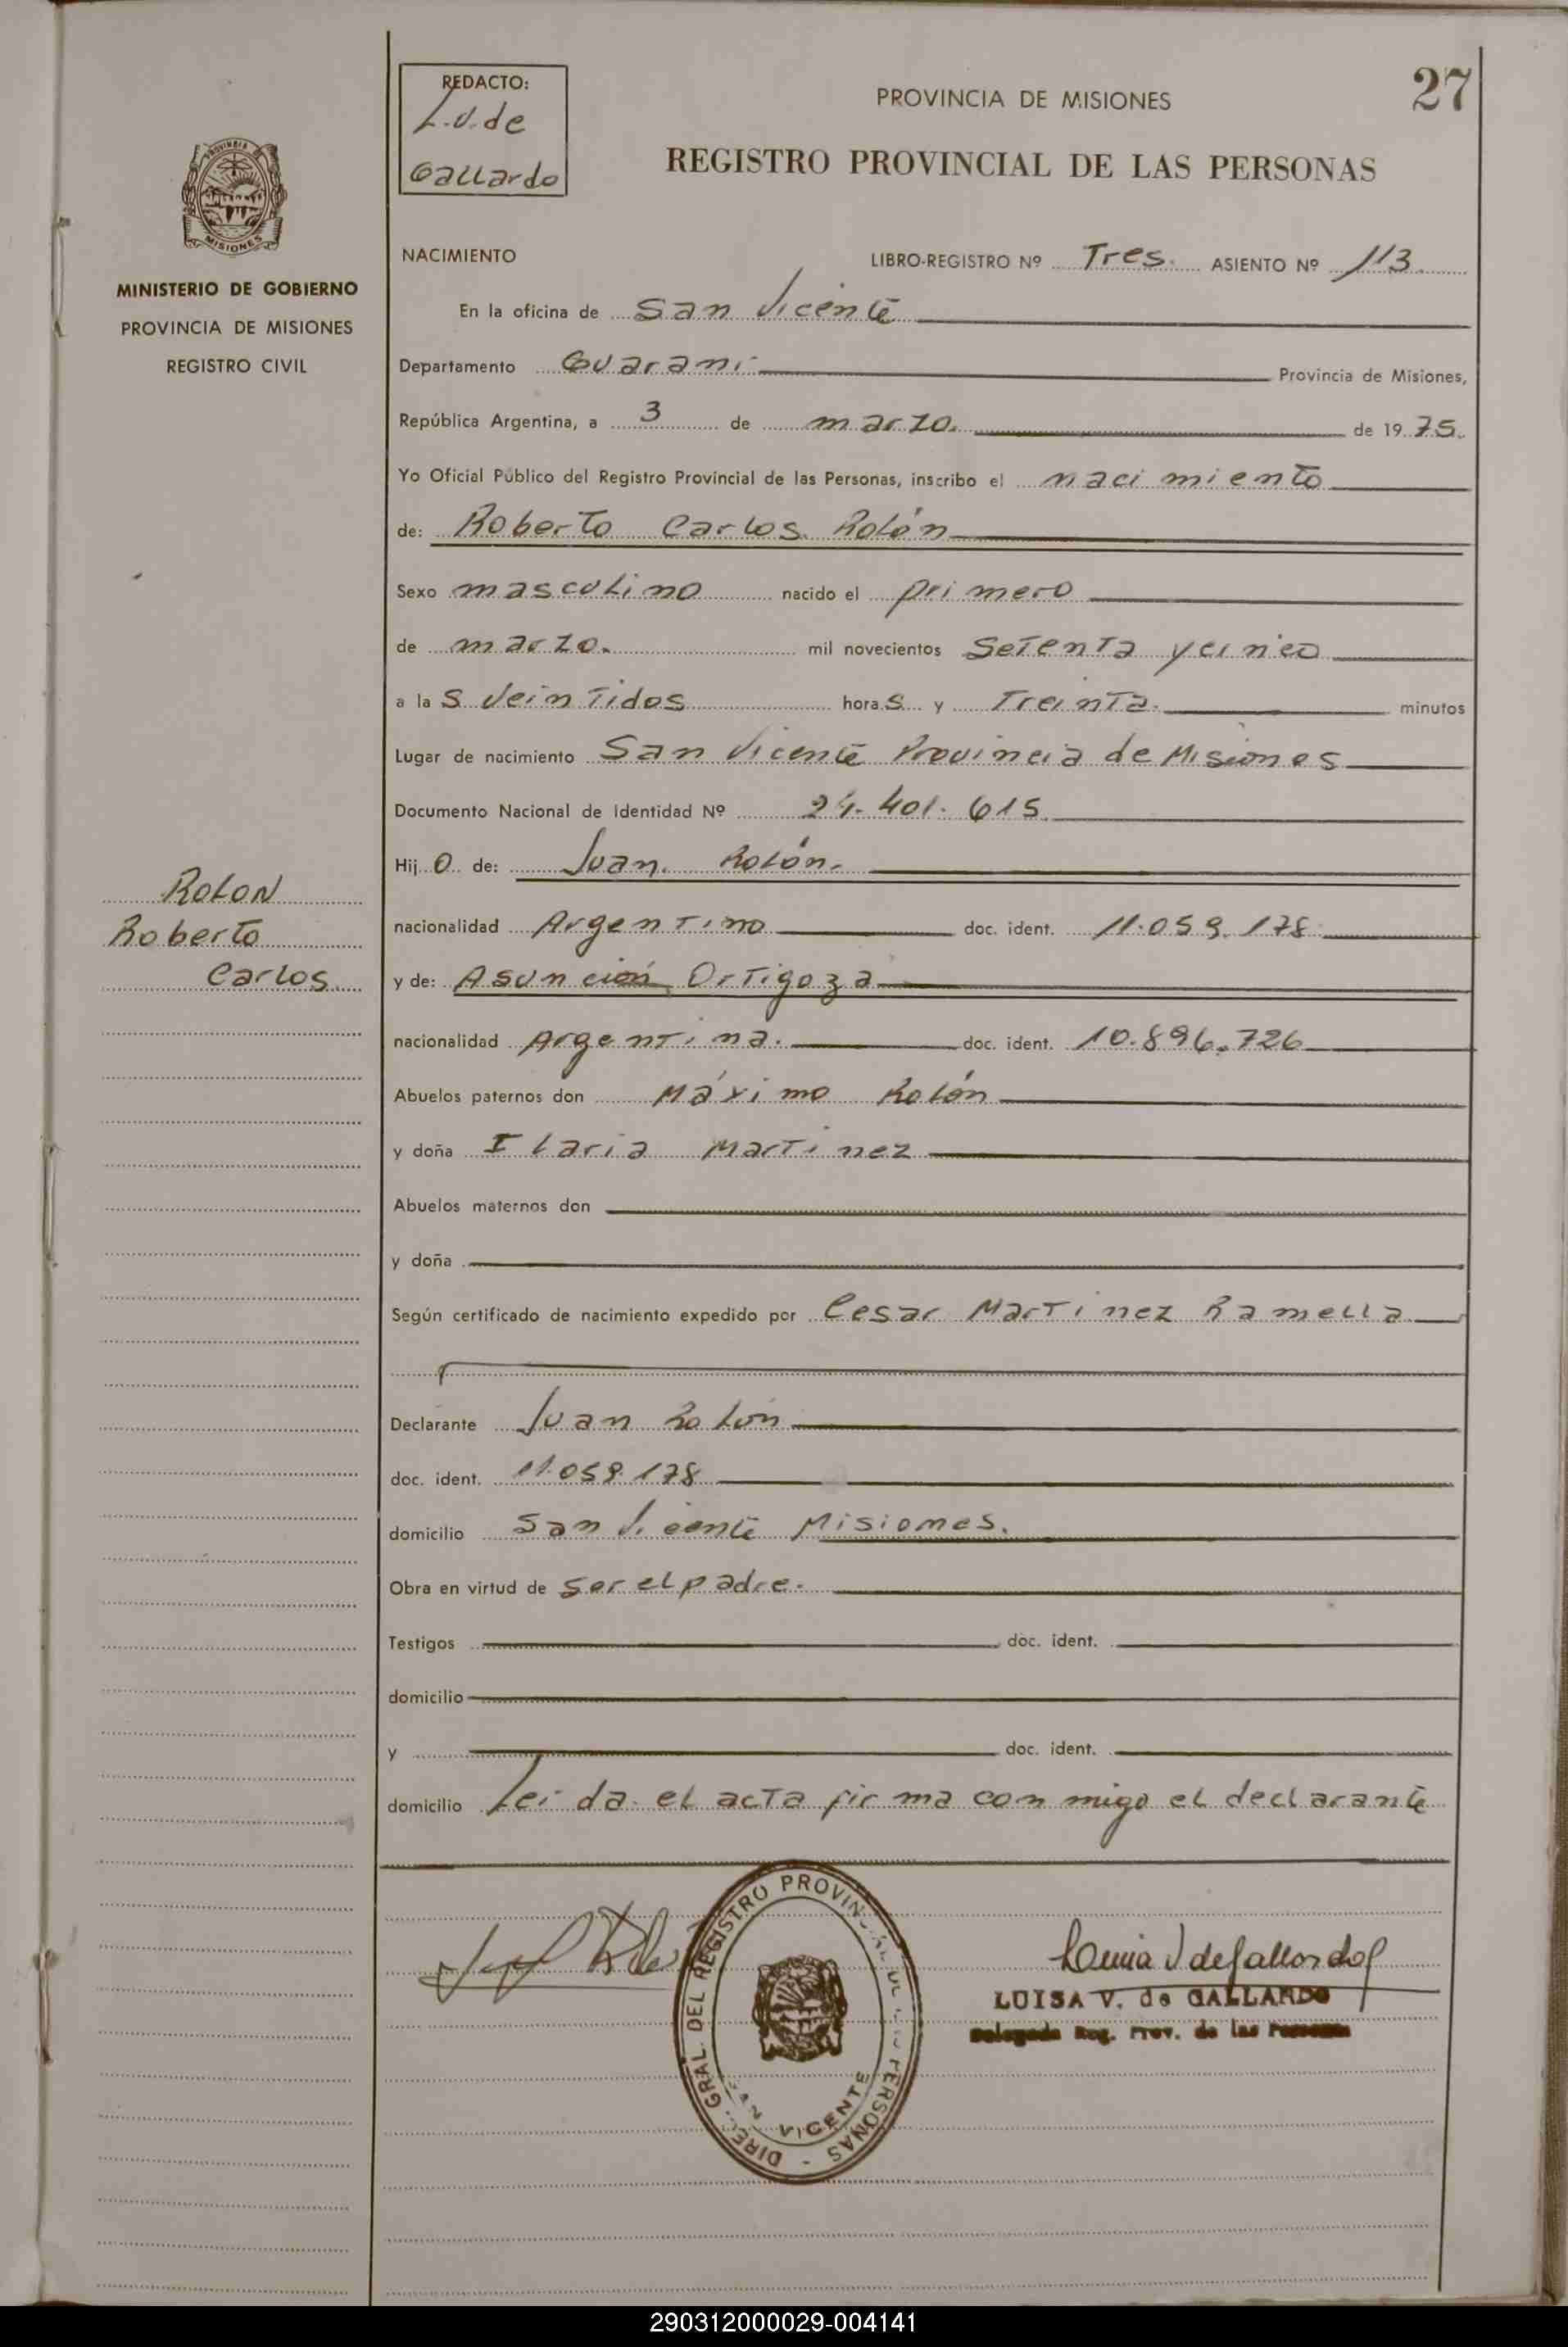 27
REDACTO:
L.V. de
Gallardo
PROVINCIA DE MISIONES
REGISTRO PROVINCIAL DE LAS PERSONAS
PROVINCIA
MISIONES
MINISTERIO DE GOBIERNO
PROVINCIA DE MISIONES
REGISTRO CIVIL
NACIMIENTO LIBRO-REGISTRO Nº Tres. ASIENTO Nº 113
En la oficina de San Vicente
Departamento Guaraní Provincia de Misiones,
República Argentina, a 3 de marzo. de 1975.
Yo Oficial Público del Registro Provincial de las Personas, inscribo el nacimiento
de: Roberto Carlos Rolón
Sexo masculino nacido el primero
de marzo. mil novecientos setenta y cinco
a las veintidos horas y treinta. minutos
Lugar de nacimiento San Vicente Provincia de Misiones
Documento Nacional de Identidad Nº 24.401.615
Hijo de: Juan Rolón.
ROLON
nacionalidad Argentino doc. ident. 11.059.178
Roberto
y de: Asunción Ortigoza
Carlos
nacionalidad Argentina. doc. ident. 10.896.726
Abuelos paternos don Máximo Rolón
y doña Ilaria Martinez
Abuelos maternos don
y doña
Según certificado de nacimiento expedido por Cesar Martinez Ramella
Declarante Juan Rolón
doc. ident. 11.059.178
domicilio San Vicente Misiones.
Obra en virtud de ser el padre.
Testigos doc. ident.
domicilio
y doc. ident.
domicilio Leida el acta firma conmigo el declarante
DIREC. GRAL. DEL REGISTRO PROVINCIAL DE LAS PERSONAS
SAN VICENTE
LUISA V. de GALLARDO
Delegada Reg. Prov. de las Personas
290312000029-004141